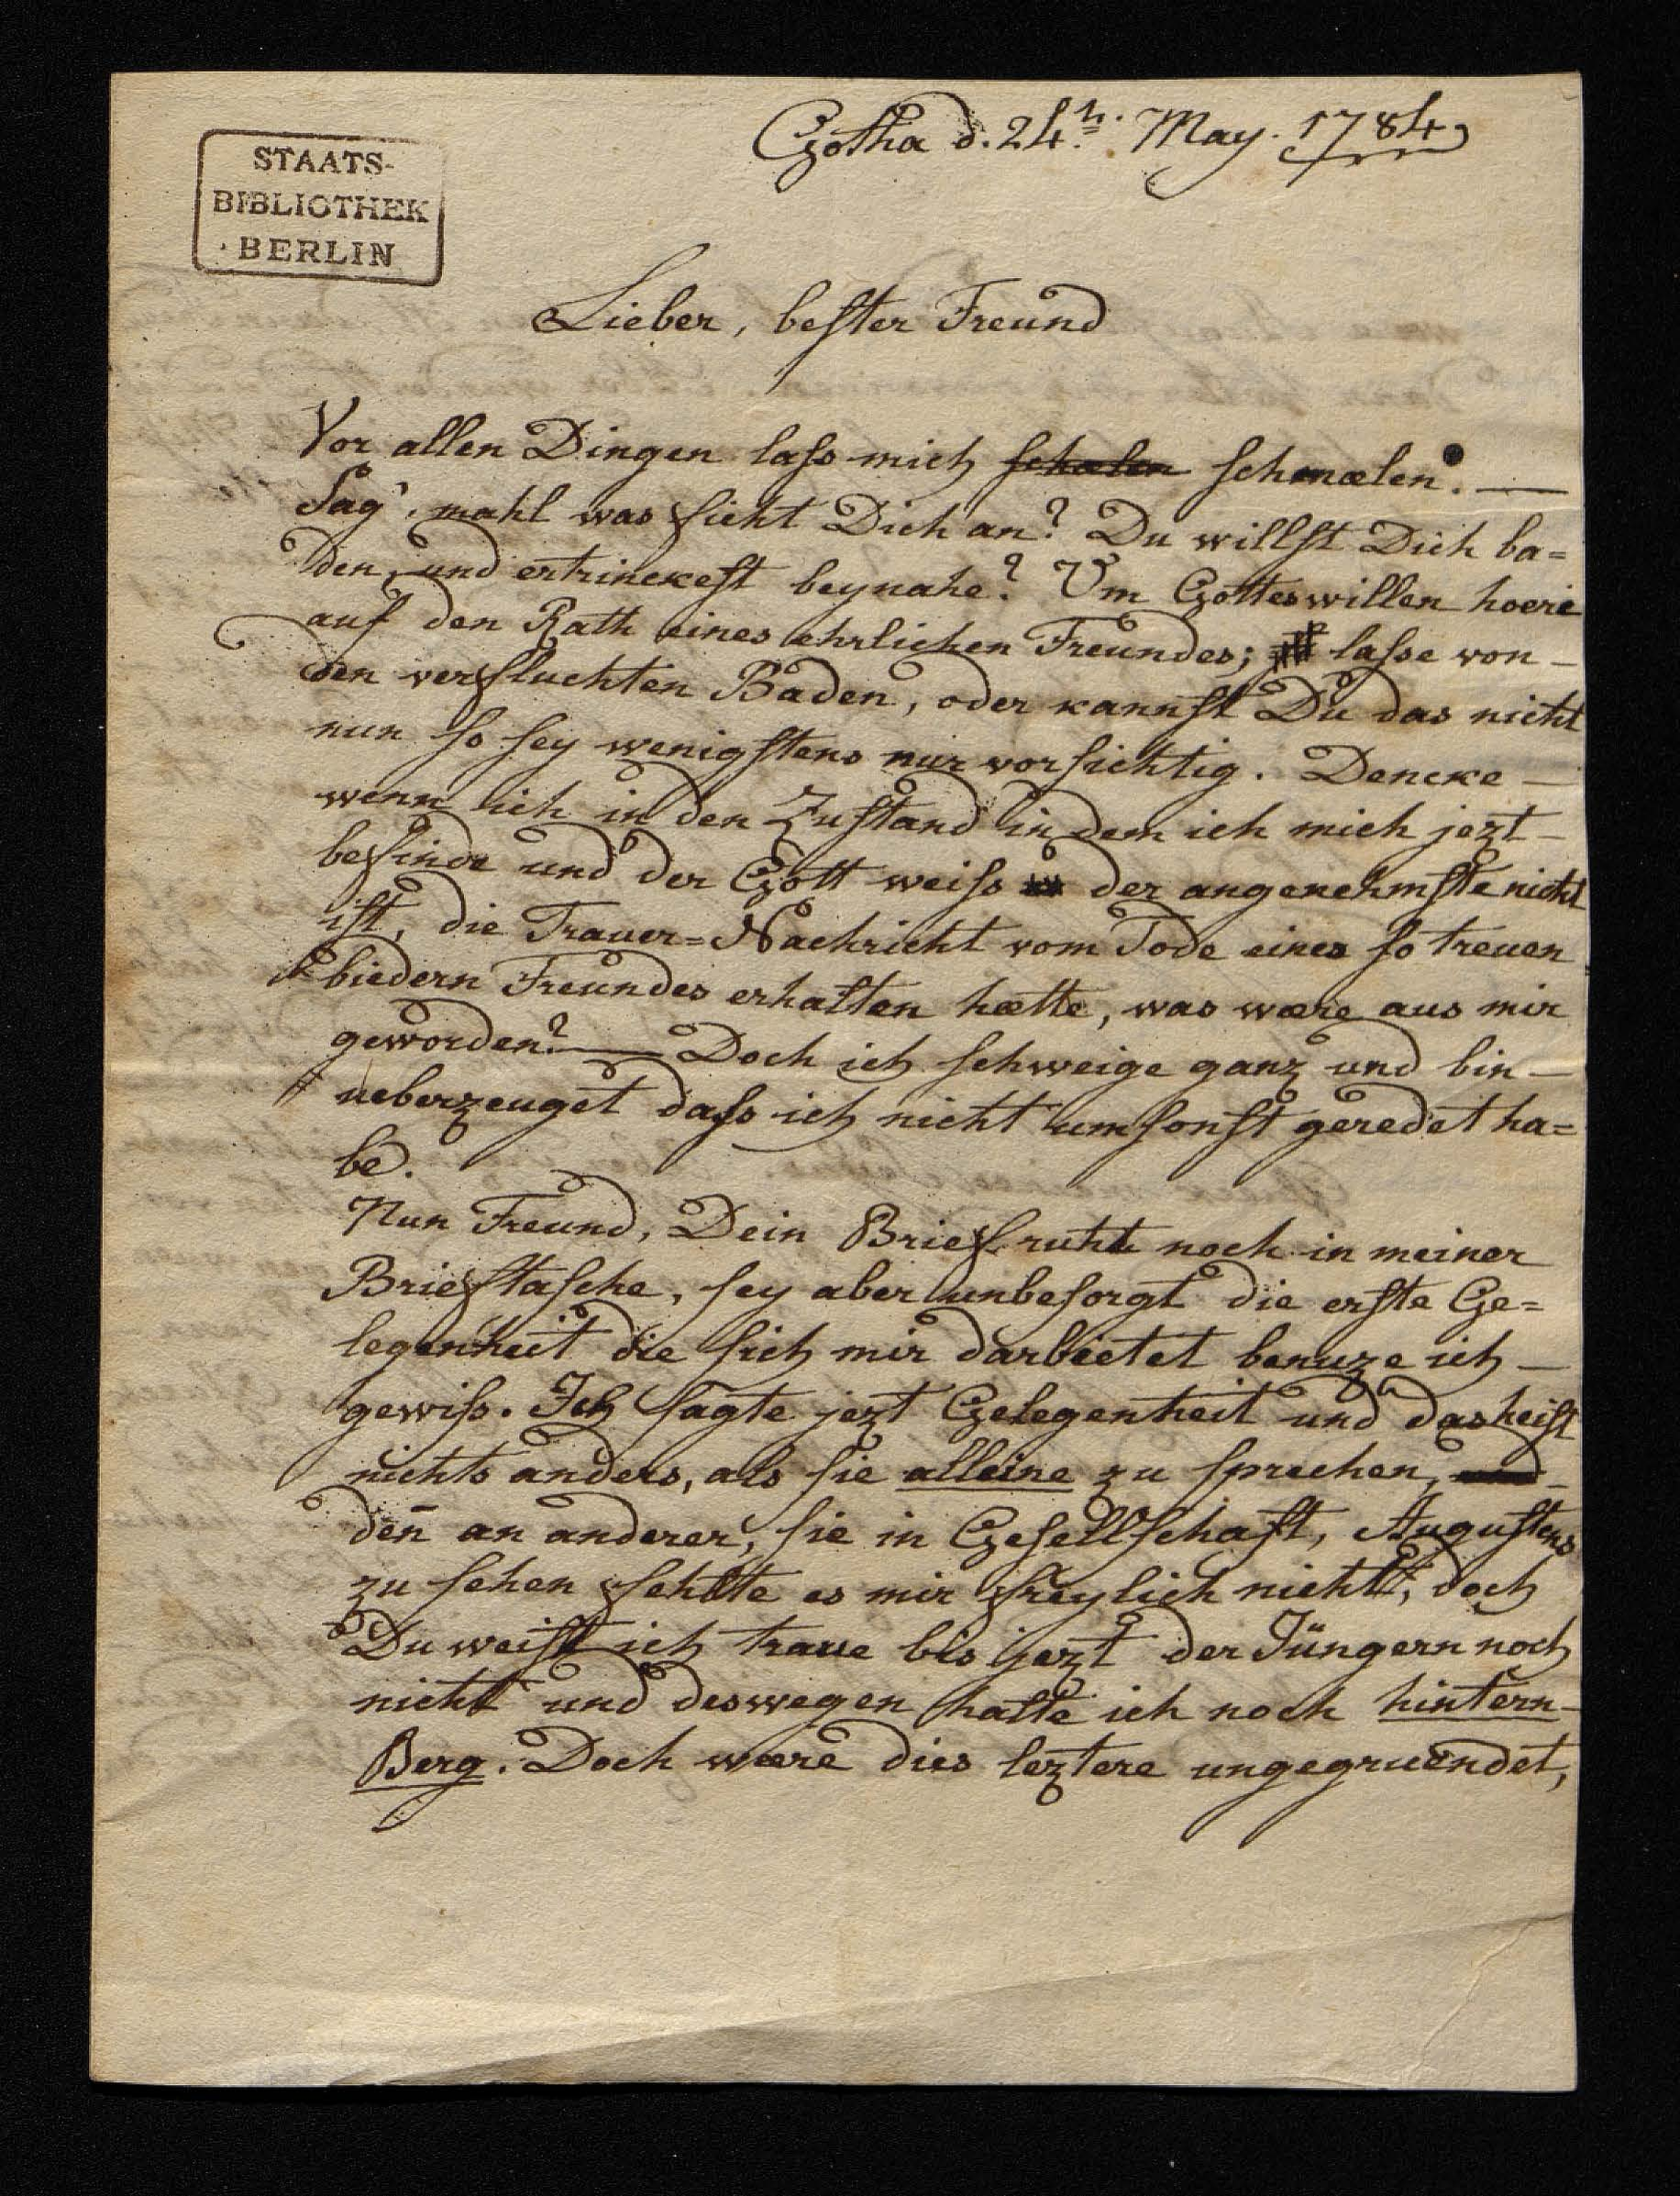 Gotha d. 24.n. May. 1784
STAATS-
BIBLIOTHEK
BERLIN
Lieber, bester Freund
Vor allen Dingen lass mich schælen schmælen. —
Sag', mahl was ficht Dich an? Du willst Dich ba=
den, und ertrinckest beynahe? Um Gotteswillen hoere
auf den Rath eines ehrlichen Freundes; lasse von —
den verfluchten Baden, oder kannst Du das nicht
nun so sey wenigstens nur vorsichtig. Dencke —
wenn ich in den Zustand in dem ich mich jezt —
befinde und der Gott weiss der angenehmste nicht
ist, die Trauer=Nachricht vom Tode eines so treuen
biedern Freundes erhalten hætte, was wære aus mir
geworden? — Doch ich schweige ganz und bin —
ueberzeuget dass ich nicht umsonst geredet ha=
be.
Nun Freund, Dein Brief ruht noch in meiner
Brieftasche, sey aber unbesorgt die erste Ge=
legenheit die sich mir darbietet benuze ich —
gewiss. Ich sagte jezt Gelegenheit und das heist
nichts anders, als sie alleine zu sprechen, und —
deñ an anderer, sie in Gesellschaft, Augustens
zu sehen fehlte es mir freylich nicht, doch
Du weist ich traue bis jezt der Jüngern noch
nicht und deswegen halte ich noch hintern —
Berg. Doch wære dies leztere ungegruendet,